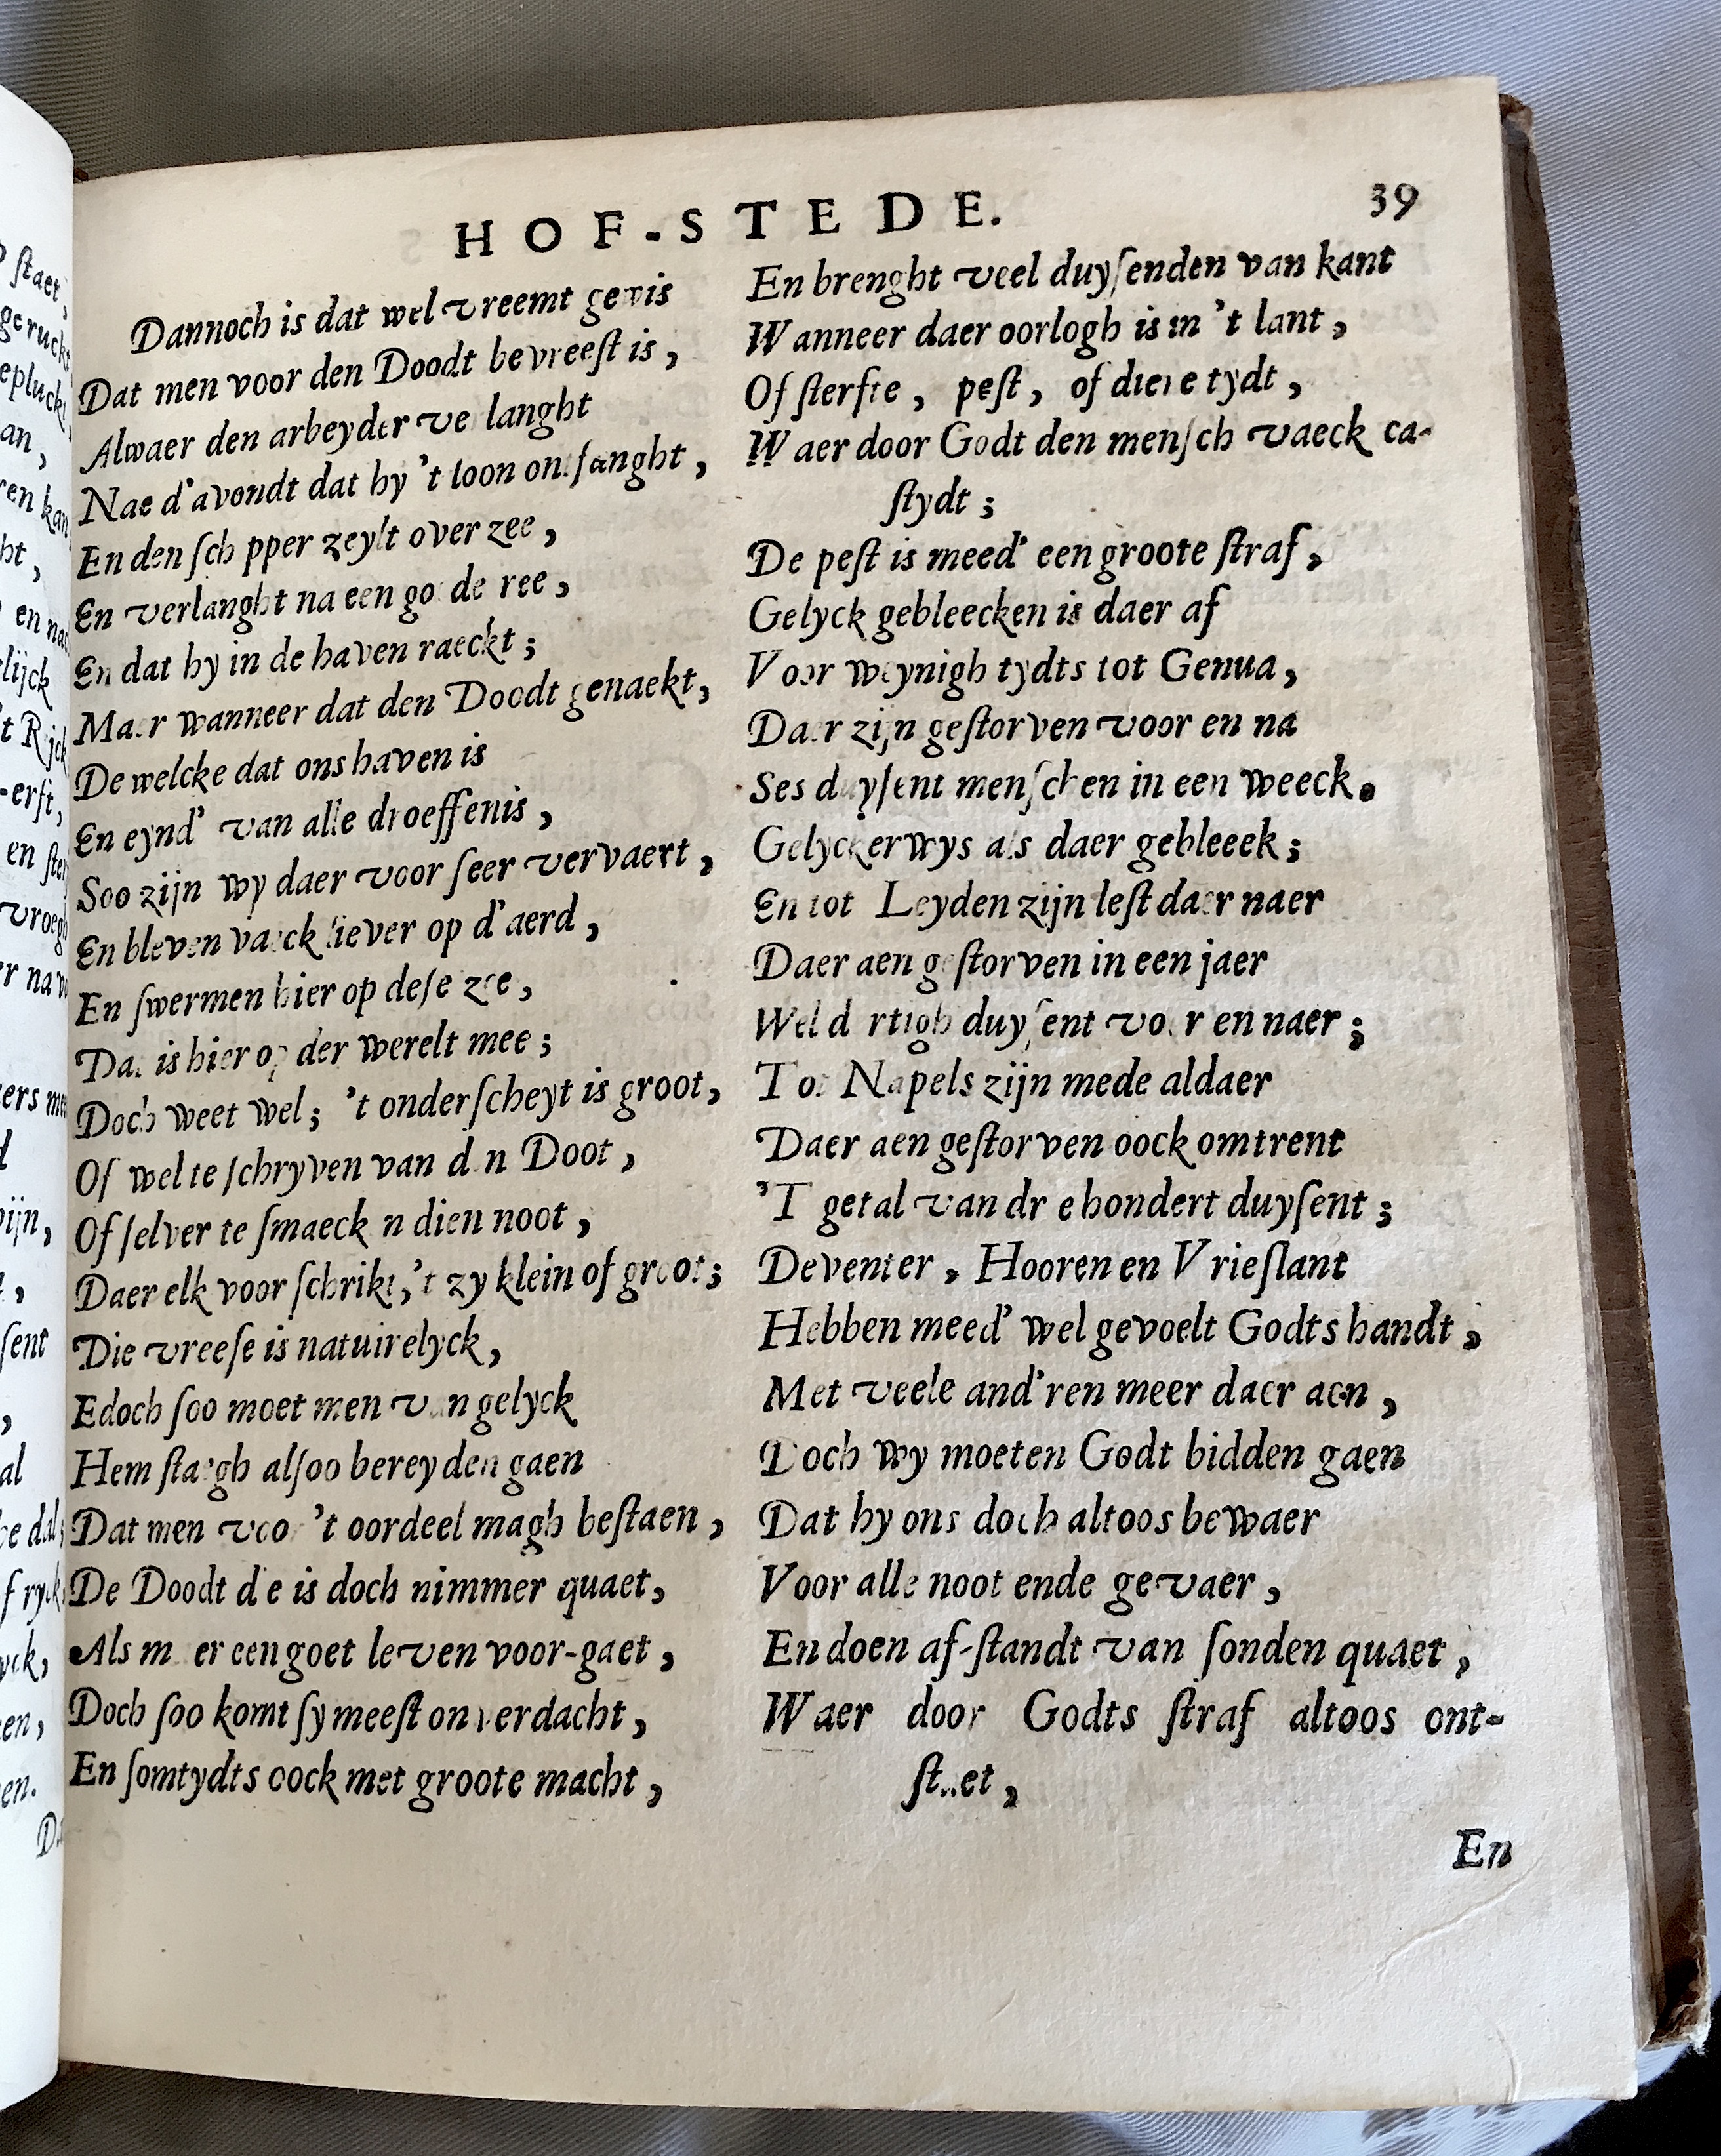 HOF-STEDE. 39
Dannoch is dat wel vreemt gewis
Dat men voor den Doodt bevreest is,
Alwaer den arbeyder verlanght
Nae d'avondt dat hy 't loon ontfanght,
En den schipper zeylt over zee,
En verlanght na een goede ree,
En dat hy in de haven raeckt;
Maer wanneer dat den Doodt genaekt,
De welcke dat ons haven is
En eynd' van alle droeffenis,
Soo zijn wy daer voor seer vervaert,
En bleven vaeck liever op d'aerd,
En swermen hier op dese zee,
Dat is hier op der werelt mee;
Doch weet wel; 't onderscheyt is groot,
Of wel te schryven van den Doot,
Of selver te smaecken dien noot,
Daer elk voor schrikt, 't zy klein of groot;
Die vreese is natuirelyck,
Edoch soo moet men van gelyck
Hem staegh alsoo bereyden gaen
Dat men voor 't oordeel magh bestaen,
De Doodt die is doch nimmer quaet,
Als m er een goet leven voor-gaet,
Doch soo komt sy meest onverdacht,
En somtydts oock met groote macht,
En brenght veel duysenden van kant
Wanneer daer oorlogh is in 't lant,
Of sterfte, pest, of diere tydt,
Waer door Godt den mensch vaeck ca-
stydt;
De pest is meed' een groote straf,
Gelyck gebleecken is daer af
Voor weynigh tydts tot Genua,
Daer zijn gestorven voor en na
Ses duysent menschen in een weeck.
Gelyckerwys als daer gebleeek;
En tot Leyden zijn lest daer naer
Daer aen gestorven in een jaer
Wel dertigh duysent voor en naer;
Tot Napels zijn mede aldaer
Daer aen gestorven oock omtrent
'T getal van drie hondert duysent;
Deventer, Hooren en Vrieslant
Hebben meed' wel gevoelt Godts handt,
Met veele and'ren meer daer aen,
Doch wy moeten Godt bidden gaen
Dat hy ons doch altoos bewaer
Voor alle noot ende gevaer,
En doen af-standt van sonden quaet,
Waer door Godts straf altoos ont-
staet,
En